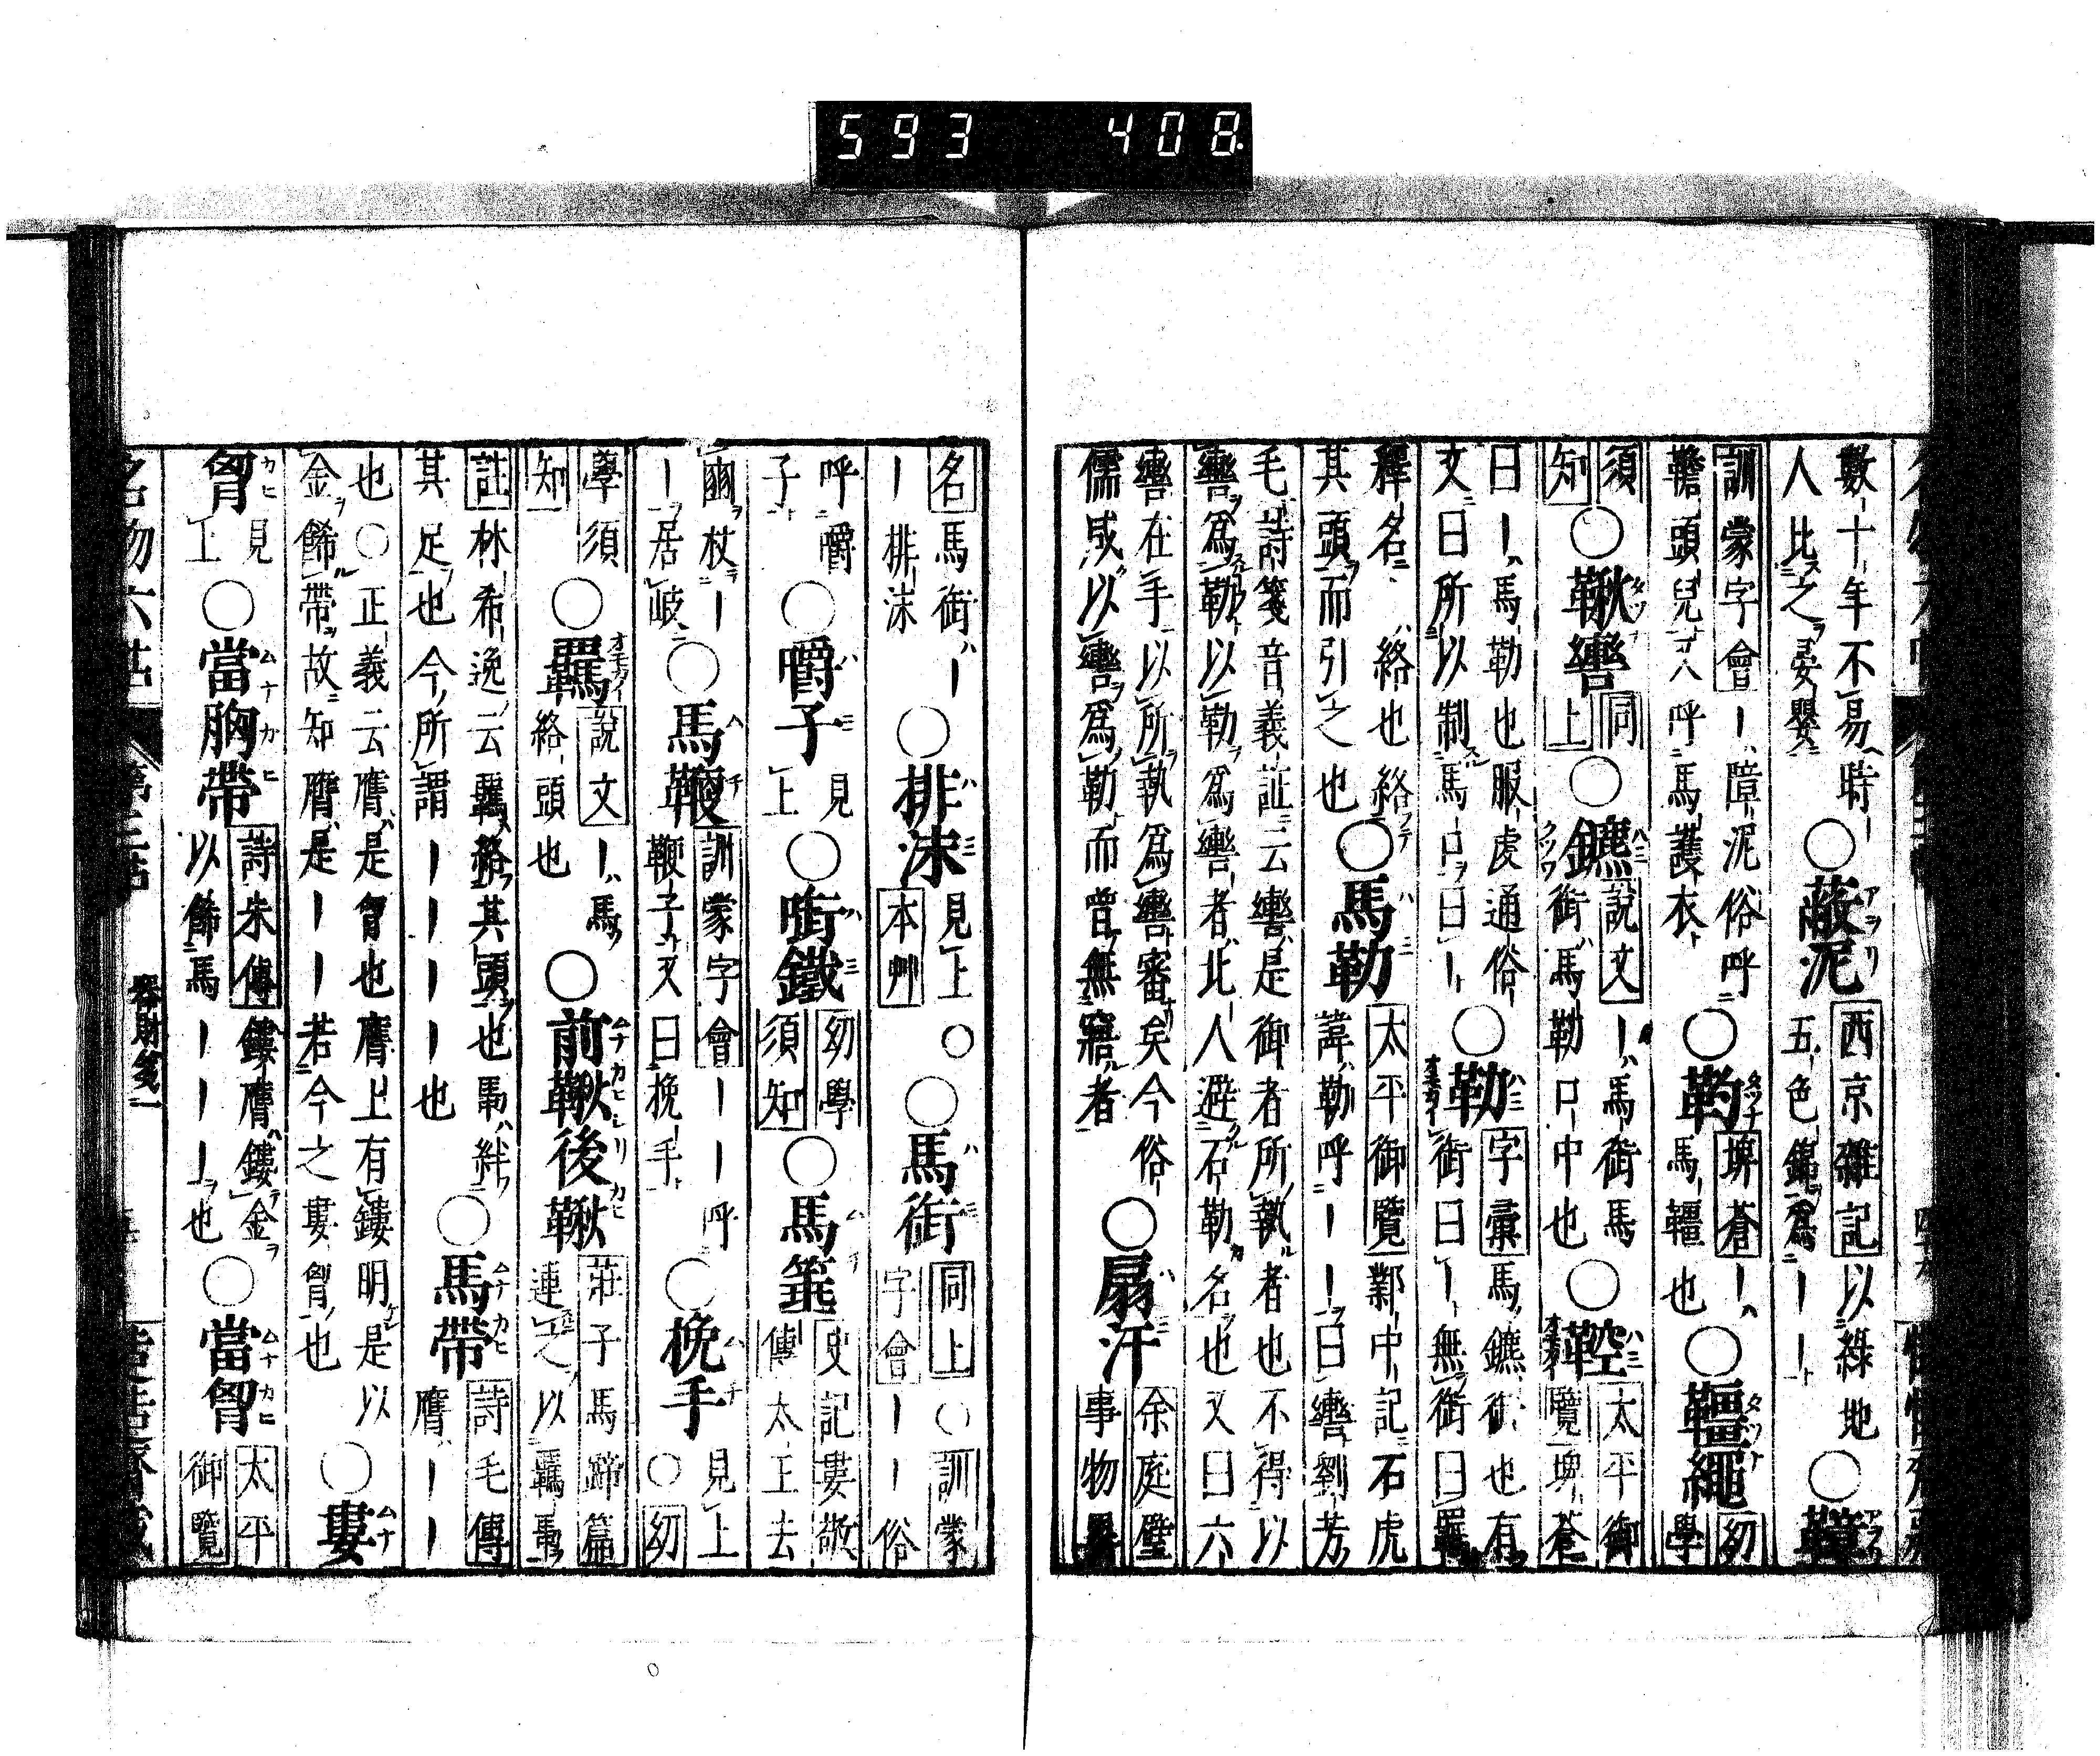 593 408
數十年不易時一
人比之晏嬰
○蔽泥
西京雜記以綠地
五色錦爲一一
○鞾
訓蒙字會一障泥俗呼
韂頭兒一八呼馬護衣
○靮
埤蒼一
馬韁也
○韁繩
幼學
須知
○鞦轡
同上
○鑣
說文一馬銜馬
銜馬勒口中也
○鞚
太平御覽埤蒼
曰一馬勒也服虔通俗
文曰所以制馬口曰一
○勒
字彙馬鑣銜也有
銜曰一無銜曰羈
釋名絡也絡
其頭而引之也
○馬勒
太平御覽鄴中記石虎
諱勒呼一一曰轡劉芳
毛詩箋音義証云轡是御者所執者也不得以
轡爲勒以勒爲轡者北人避石勒名也又曰六
轡在手以所執爲轡審矣今俗
儒咸以轡爲勒而曾無寤者
○扇汗
余庭璧
事物異
名馬銜一
一排沫
○排沫
見上○
本艸
○馬銜
同上○訓蒙
字會一一俗
呼嚼
子
○嚼子
見上
○銜鐵
幼學
須知
○馬箠
史記婁敬
傳太王去
豳杖一
一居岐
○馬鞭
訓蒙字會一一呼
鞭子又曰挽手
○挽手
見上
○幼
學須
知
○羈
說文一馬
絡頭也
○前鞦後鞦
莊子馬蹄篇
連之以羈馽
註林希逸云羈絡其頭也馽絆
其足也今所謂一一一一也
○馬帶
詩毛傳
膺一一
也○正義云膺是胷也膺上有鏤明是以
金飾帶故知膺是一一若今之婁胷也
○婁
胷
見上
○當胸帶
詩朱傳鏤膺鏤金
以飾馬一一一也
○當胷
太平
御覽
名物六帖
第三帖
器財箋一